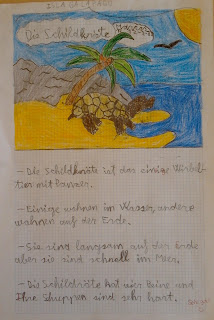 Die Schildkröte
- Die Schildkröte ist das einige Wirbel-
tier mit Panzer.
- Einige wohnen im Wasser, andere
wohnen auf der Erde.
- Sie sind langsam auf der Erde
aber sie sind schnell im Meer.
- Die Schildkröte hat vier Beine und
Ihre Shuppen sind sehr hart.